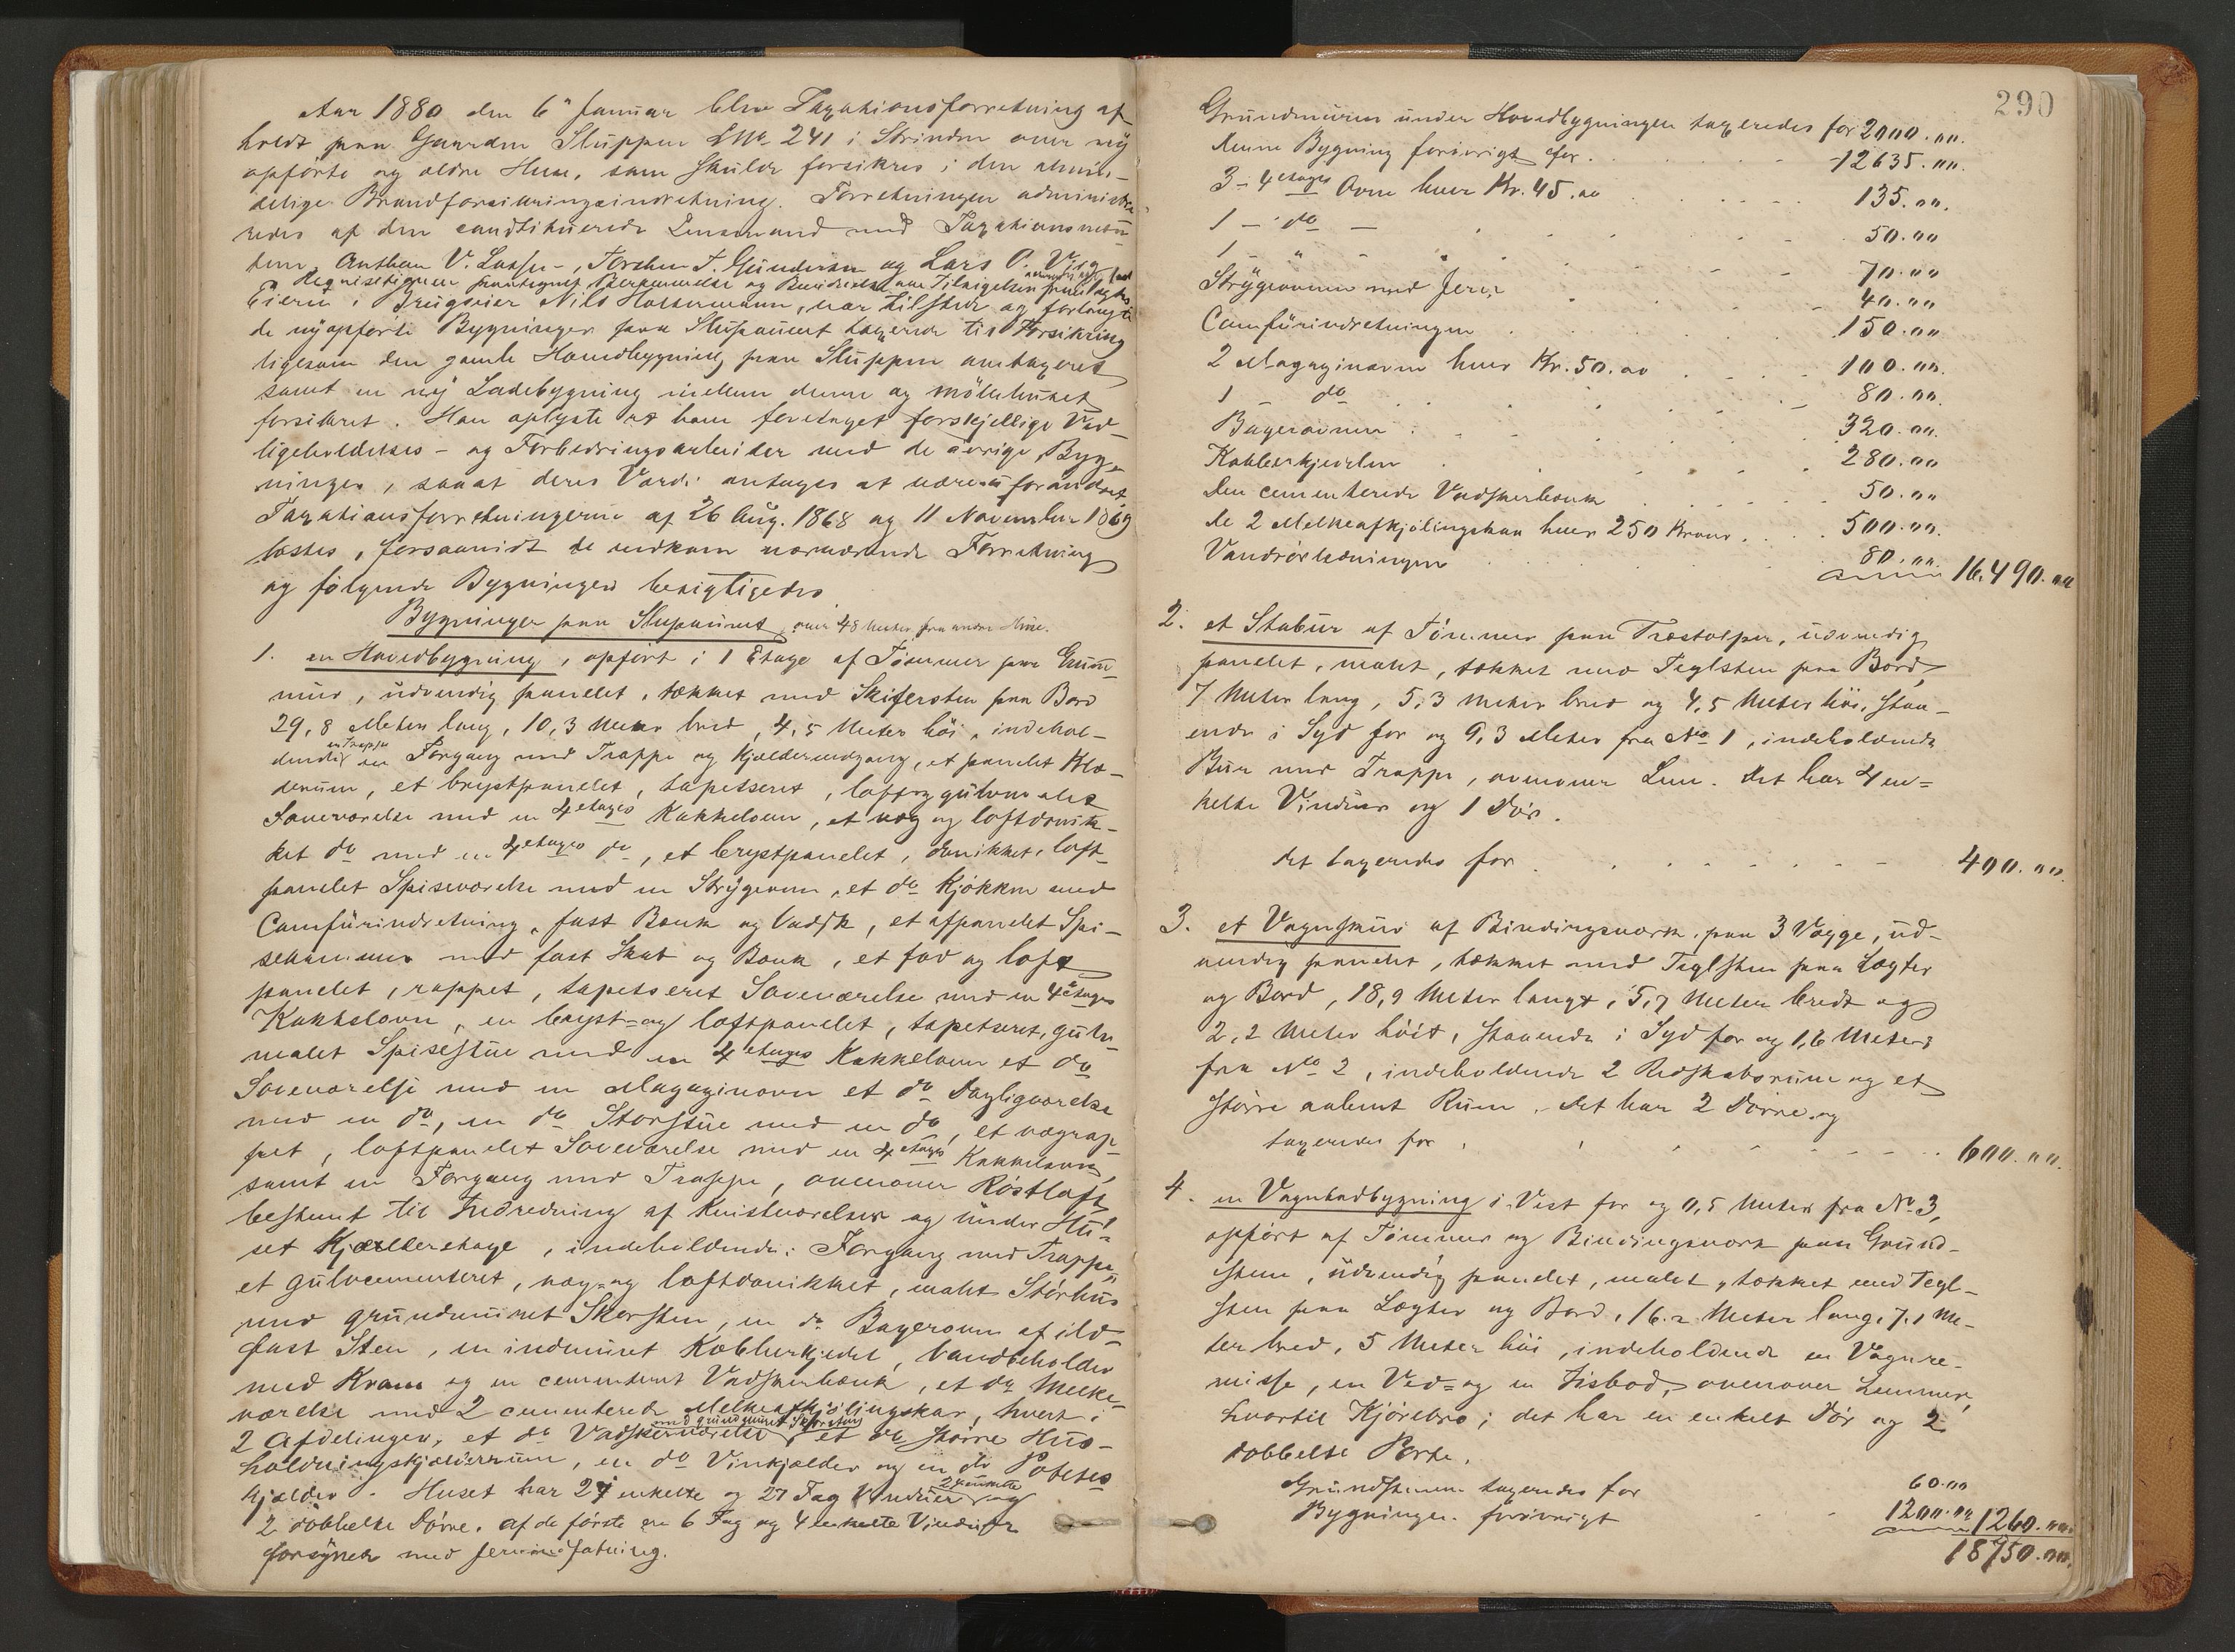 Aar 1880 den 6 Januar blev Taxationsforretning af
holdt paa Gaarden Sluppen LNo 241 i Strinden over ny
opførte og ældre Huse, som skulde forsikres i den almin-
delige Brandforsikringsindretning. Forretningen administre
redes af den constituerede Lensmand med Taxationsmæn
dene Anthon V. Lassen, F. Gundersen og Lars O. Vig
Requisitionen paategnet Berammelse og fremlagdes
Eieren Brugseier Nils Halsermann, var tilstede og forlangte
de nyopførte Bygninger paa Slupaunet taxerede til Forsikring
ligesom den gamle Hovedbygning paa Sluppen omtaxeret
samt en ny Ladebygning mellem denne og møllehuset
forsikret. Han oplyste at have foretaget forskjellige Ved-
ligeholdelses- og Forbedringsarbeider med de øvrige Byg-
ninger, saaat deres Værdi antages at være uforandret
Taxationsforretningerne af 26 Aug. 1868 og 11 November 1869
læstes, forsaavidt de vedkom nærværende Forretning
og følgende Bygninger besigtigedes
Bygninger paa Slupaunet, over 48 Meter fra andre Huse.
1. en Hovedbygning, opført i 1 Etage af Tømmer paa Grund
mur, udvendig panelet, tækket med Skifersten paa Bord
29,8 Meter lang, 10,3 Meter bred, 4,5 Meter høi, indehol-
en Trappe
dende en Forgang med Trappe og Kjældernedgang, et panelet Klæ-
derum, et brystpanelet, tapetseret, loft og gulvmalet
Soveværelse med en 4 etages Kakkelovn, et væg og loftdonik-
ket do med en 4 etages do, et brystpanelet, donikket, loft-
panelet Spiseværelse med en Strygeovn, et do Kjøkken med
Comfurindretning, fast Bænk og Vadsk, et afpanelet Spi-
sekammer med fast Skab og Bænk, et fod og loft
panelet, rappet, tapetseret Soveværelse med en 4 etages
Kakkelovn, en bryst- og loftpanelet, tapetseret, gulv
malet Spisestue med en 4 etages Kakkelovn et do
Soveværelse med en Magazinovn et do Dagligværelse
med en do, en do Storstue med en do, et vægrap-
pet, loftpanelet Soveværelse med en 4 etages Kakkelovn,
samt en Forgang med Trappe, ovenover Røstloft
bestemt til Indredning af Kvistværelser og under Hu-
set Kjælleretage, indeholdende: Forgang med Trappe,
et gulvcementeret, væg- og loftdonikket, malet Størhus
med grundmuret Skorsten, en do Bagerovn af ild-
fast Sten, en indmuret Kobberkjedel, Vandbeholder
med Kran og en cementeret Vadskerbænk, et do Melke-
værelse med 2 cementerede Melkeafkjølingskar, hvert i
med grundmuret Skorsten
2 Afdelinger, et do Vadskerværelse, et do større Hus-
holdningskjælderrum, en do Vinkjælder og en do Potetes
kjælder. Huset har 27 enkelte og 27 Fag Vinduer og
2 dobbelte Dørre. Af de første er 6 Fag og 4 enkelte Vinduer
forsynet med Jernindfatning.
290
Grundmuren under Hovedbygningen taxeredes for 2000.00.
denne Bygning forøvrigt for 12635.00.
3 - 4 etages Ovne hver Kr. 45.00 135.00.
1 - do - 50.00
1 - " " 70.00
Strygeovnen med Jern 40.00
Comfurindretningen 150.00
2 Magazinovne hver Kr. 50.00 100.00.
1 do 80.00.
Bagerovnen 320.00.
Kobberkjedelen 280.00
Den cementerede Vadskerbænk 50.00
de 2 Melkeafkjølingskar hver 250 Kroner 500.00.
Vandrørledningen 80.00.
16.490.00
2. et Stabur af Tømmer paa Træstolper, udvendig
panelet, malet, tækket med Teglsten paa Bord,
7 Meter lang, 5,3 Meter bred og 4,5 Meter høi, staa-
ende i Syd for og 9,3 Meter fra No 1, indeholdende
Bur med Trappe, ovenover Lem. Det har 4 en-
kelte Vinduer og 1 Dør.
det taxeredes for 400.00.
3. et Vognskur af Bindingsværk paa 3 Vægge, ud-
vendig panelet, tækket med Teglsten paa Lægter
og Bord, 18,9 Meter langt, 5,7 Meter bredt og
2,2 Meter høit, staaende i Syd for og 1,6 Meter
fra No 2, indeholdende 2 Redskabsrum og et
større aabent Rum. Det har 2 Dørre og
taxeredes for 600.00.
4. en Vognbodbygning i Vest for og 0,5 Meter fra No 3,
opført af Tømmer og Bindingsværk paa Grund-
stene, udvendig panelet, malet, tækket med Tegl-
sten paa Lægter og Bord, 16.2 Meter lang, 7.1 Me-
ter bred, 5 Meter høi, indeholdende en Vognre-
misse, en Ved- og en Iisbod, ovenover Lemmer,
hvortil Kjørebro; det har en enkelt Dør og 2
dobbelte Porte.
Grundstenene taxeredes for 60.00
Bygningen forøvrigt 1200.00
1260.00
18750.00.